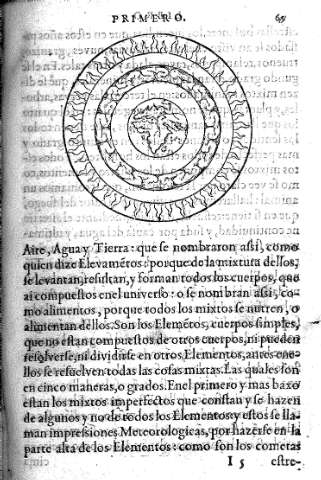 PRIMERO. 69
Aire, Agua y Tierra: que se nombraron assi, como
quien dize Elevamētos: porque de la mixtura dellos,
se levantan, resultan, y forman todos los cuerpos, que
ai compuestos en el universo: o se nombran assi, co-
mo alimentos, porque todos los mixtos se nutren, o
alimentan dellos. Son los Elemētos, cuerpos simples,
que no estan compuestos de otros cuerpos, ni pueden
resolverse, ni dividirse en otros Elementos, antes en e-
llos se resuelven todas las cosas mixtas. Las quales son
en cinco maneras, o grados. En el primero y mas baxo
estan los mixtos imperfectos que constan y se hazen
de algunos y no de todos los Elementos y estos se lla-
man impressiones Meteorologicas, por hazerse en la
parte alta de los Elementos: como son los cometas
I 5 estre-